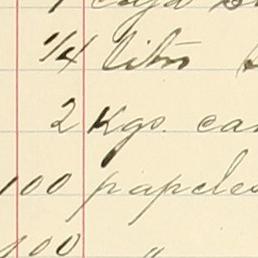 1 caja
1/4 litro
2 Kgs. ca
100 papeles
100 "